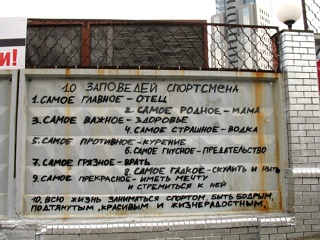 И!
10 ЗАПОВЕДЕЙ СПОРТСМЕНА
1. САМОЕ ГЛАВНОЕ – ОТЕЦ
2. САМОЕ РОДНОЕ – МАМА
3. САМОЕ ВАЖНОЕ – ЗДОРОВЬЕ
4. САМОЕ СТРАШНОЕ – ВОДКА
5. САМОЕ ПРОТИВНОЕ – КУРЕНИЕ
6. САМОЕ ГНУСНОЕ – ПРЕДАТЕЛЬСТВО
7. САМОЕ ГРЯЗНОЕ – ВРАТЬ
8. САМОЕ ГАДКОЕ – СКУЛИТЬ И НЫТЬ
9. САМОЕ ПРЕКРАСНОЕ – ИМЕТЬ МЕЧТУ
И СТРЕМИТЬСЯ К НЕЙ
10. ВСЮ ЖИЗНЬ ЗАНИМАТЬСЯ СПОРТОМ, БЫТЬ БОДРЫМ,
ПОДТЯНУТЫМ, КРАСИВЫМ И ЖИЗНЕРАДОСТНЫМ.